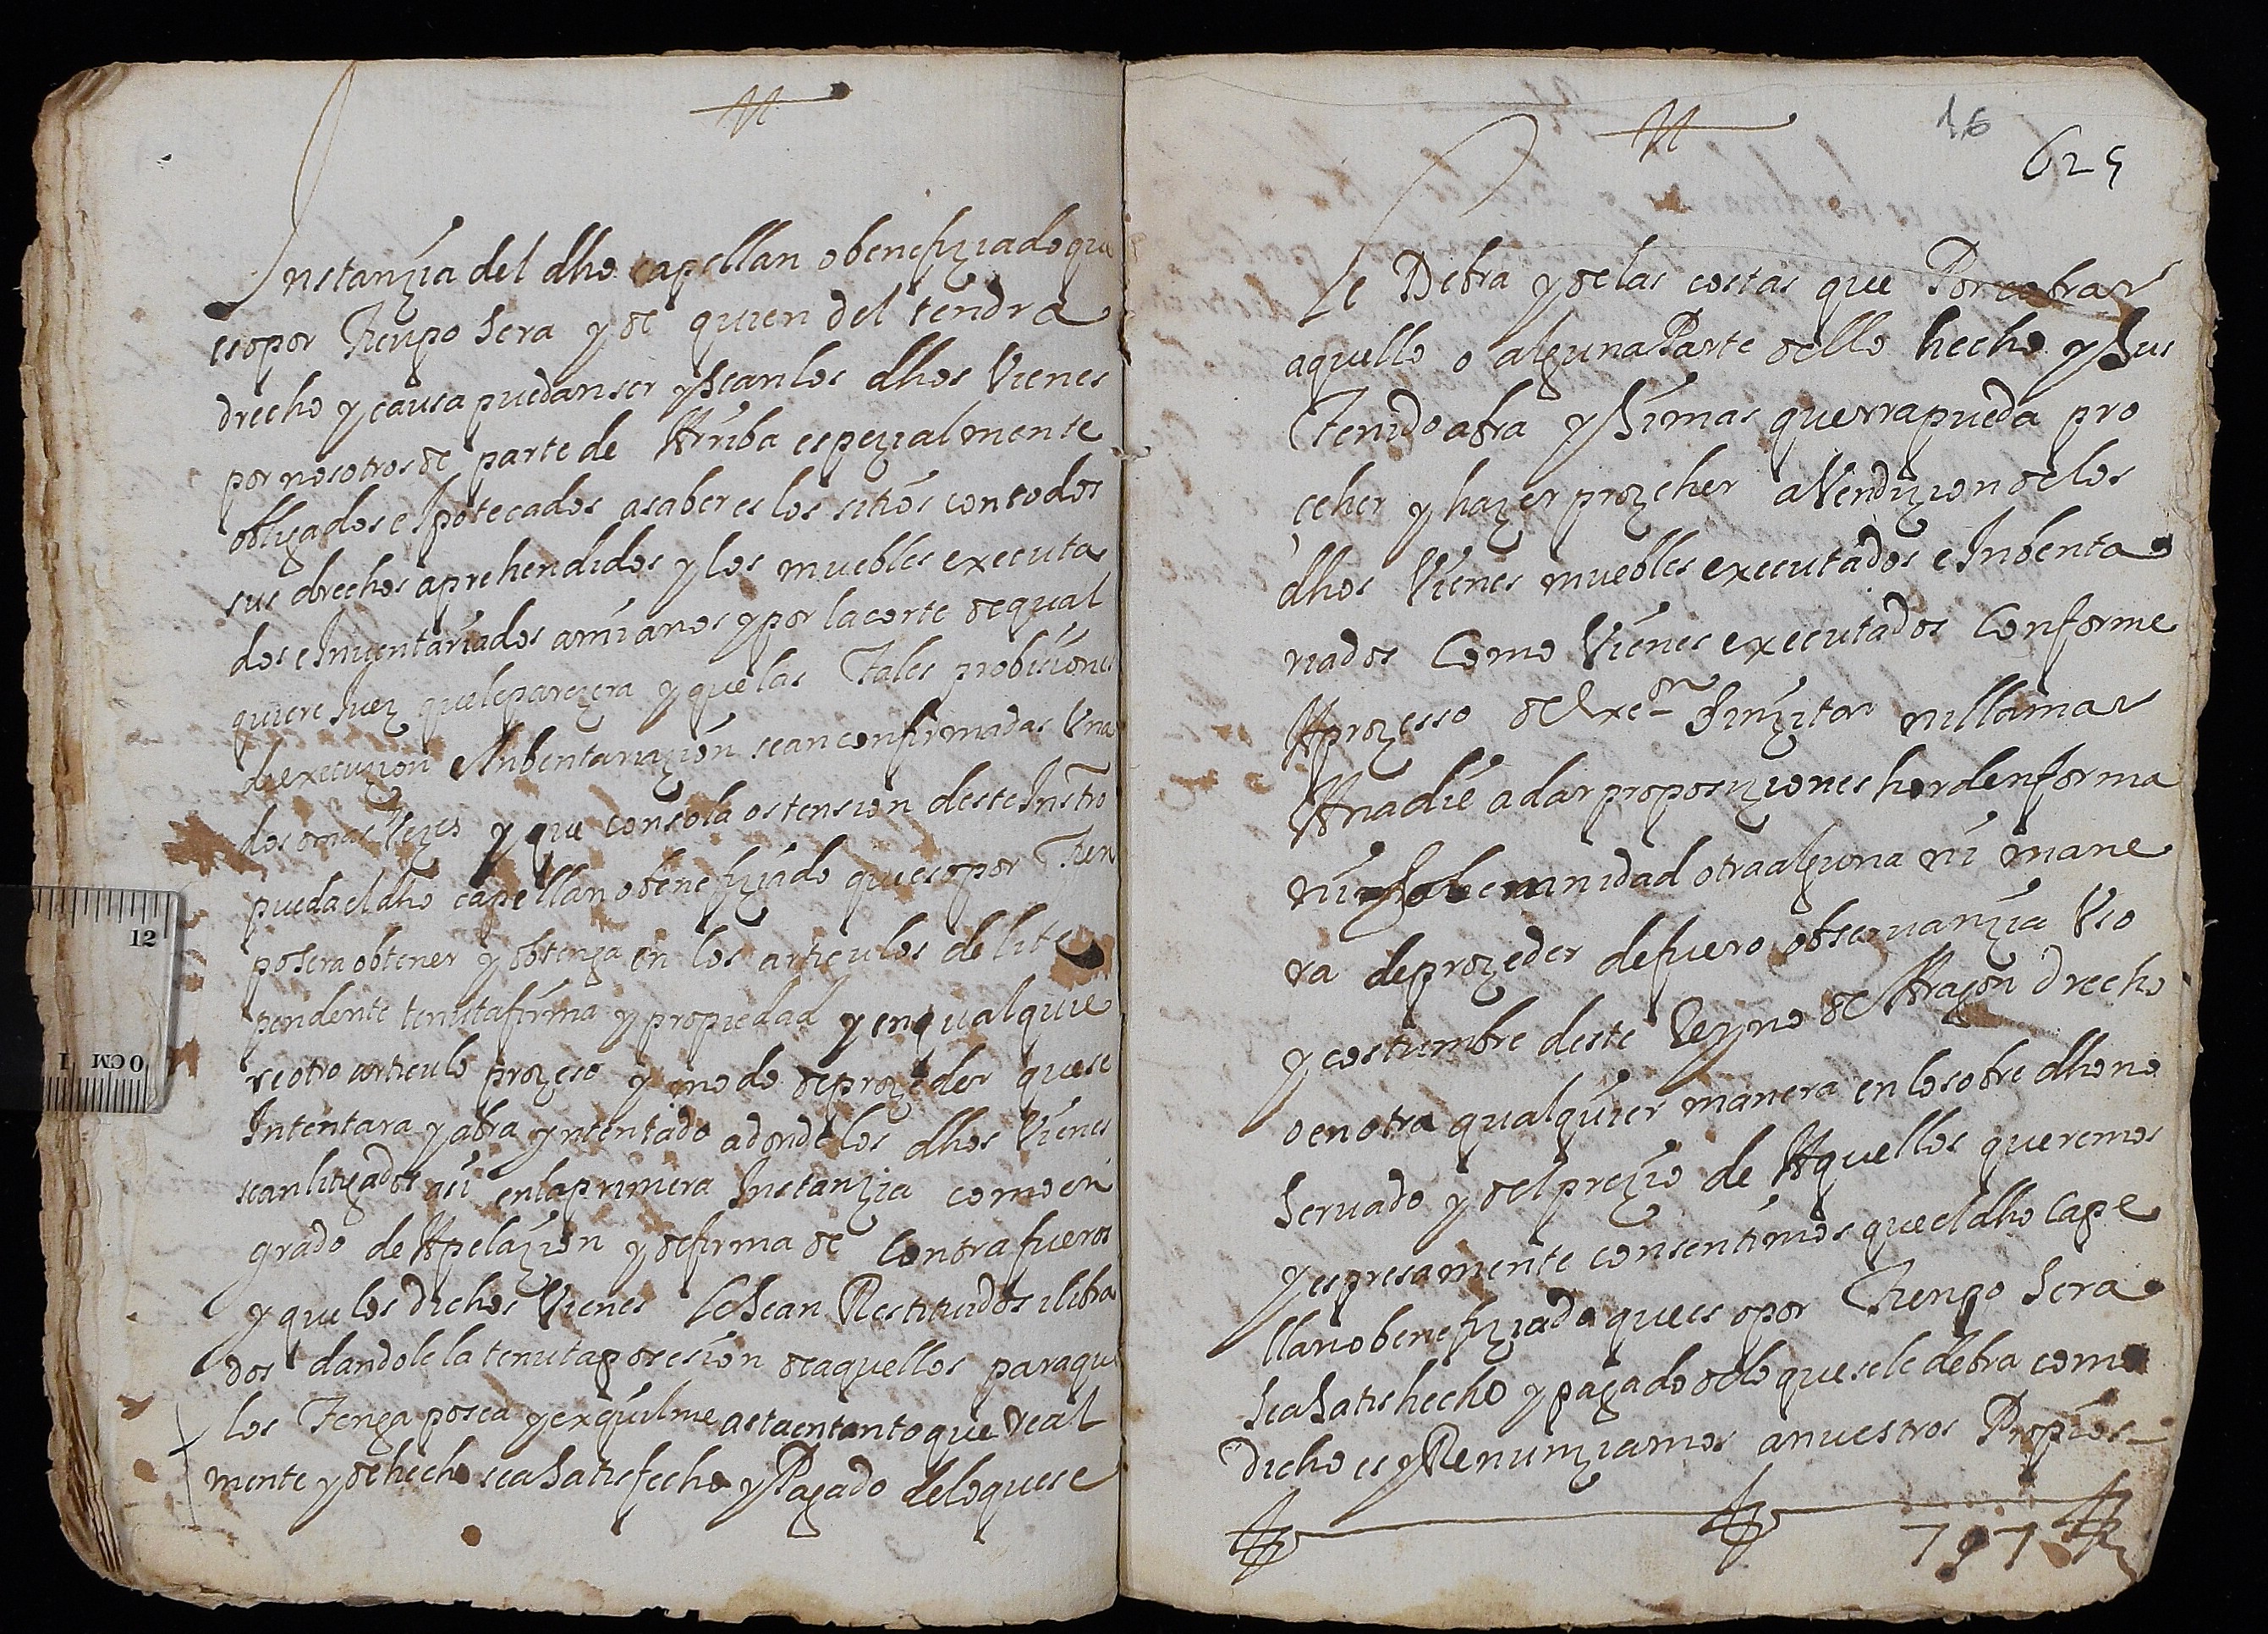 Instanzia del dho capellan o benefiziado que
es o por tienpo sera y de quien del tendra
drecho y causa puedan ser y sean los dhos Vienes
por nosotros de parte de Arriba espezialmente
obligados e Ipotecados a saber es los sitios con todos
sus drechos aprehendidos y los muebles executa
dos e Inventariados a mi anos y por la corte de qual
quiere Juez que le parezera y que las Tales probisiones
de execuzion e Inbentariazion sean confirmadas Una
dos o mas Vezes y que con sola ostension deste Instro
pueda el dho capellan o benefiziado que es o por Tien
po sera obtener y obtenga en los articulos de lite
pendente tenuta firma y propiedad y en qualquie
re otro articulo prozeso y modo de prozeder que se
Intentara y abra yntentado adonde los dhos Vienes
sean litigados asi en la primera Instanzia como en
grado de Apelazion y de firma de Contrafueros
y que los dichos Vienes le Sean Restituidos i libra
dos dandole la tenuta posesion de aquellos para que
los Tenga posea y exquilme asta en tanto que real
mente y de hecho sea Satisfecho y Pagado de lo que se
16
625
Le Debra y de las costas que Por cobrar
aquello o alguna Parte dello hecho y Sus
Tenido abra y Si mas querra pueda pro
çeher y hazer prozeher a Vendizion de los
dhos Vienes muebles executados e Inbenta
riados Como Vienes executados Conforme
A prozesso de Exeon sin zitar ni llamar
A nadie a dar proposiziones horden forma
ni Solemnidad otra alguna ni mane
ra de prozeder de fuero obseruanzia Uso
y costumbre deste Reyno de Aragon drecho
o en otra qualquier manera en lo sobre dho no
Seruado y del prezio de Aquellos queremos
y espresamente consentimos que el dho Cape
llan o benefiziado que es o por Tienpo Sera
Sea Satishecho y pagado de lo que se le debra como
dicho es y Renunziamos a nuestros Propios